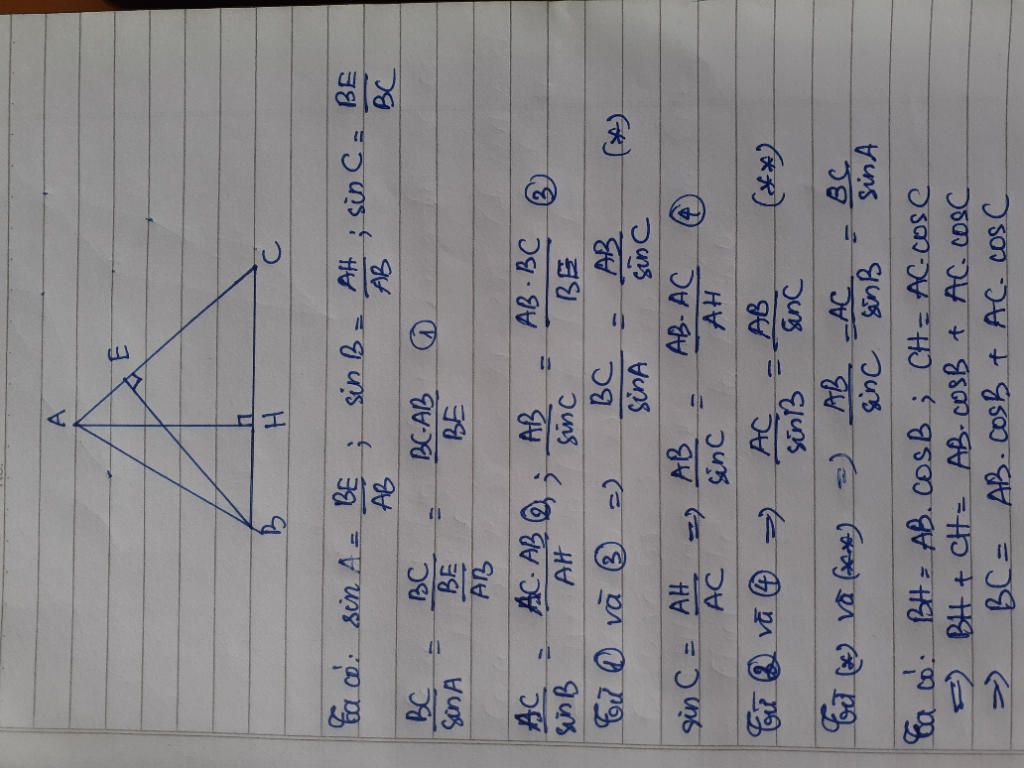 A
E
B
H
C
Ta có: sin A = BE/AB ; sin B = AH/AB ; sin C = BE/BC
BC/sin A = BC/(BE/AB) = BC·AB/BE ①
AC/sin B = AC·AB/AH ② ; AB/sin C = AB·BC/BE ③
Từ ① và ③ => BC/sin A = AB/sin C (*)
sin C = AH/AC => AB/sin C = AB·AC/AH ④
Từ ② và ④ => AC/sin B = AB/sin C (**)
Từ (*) và (**) => AB/sin C = AC/sin B = BC/sin A
Ta có: BH = AB.cosB ; CH = AC.cosC
=> BH + CH = AB.cosB + AC.cosC
=> BC = AB.cosB + AC.cosC